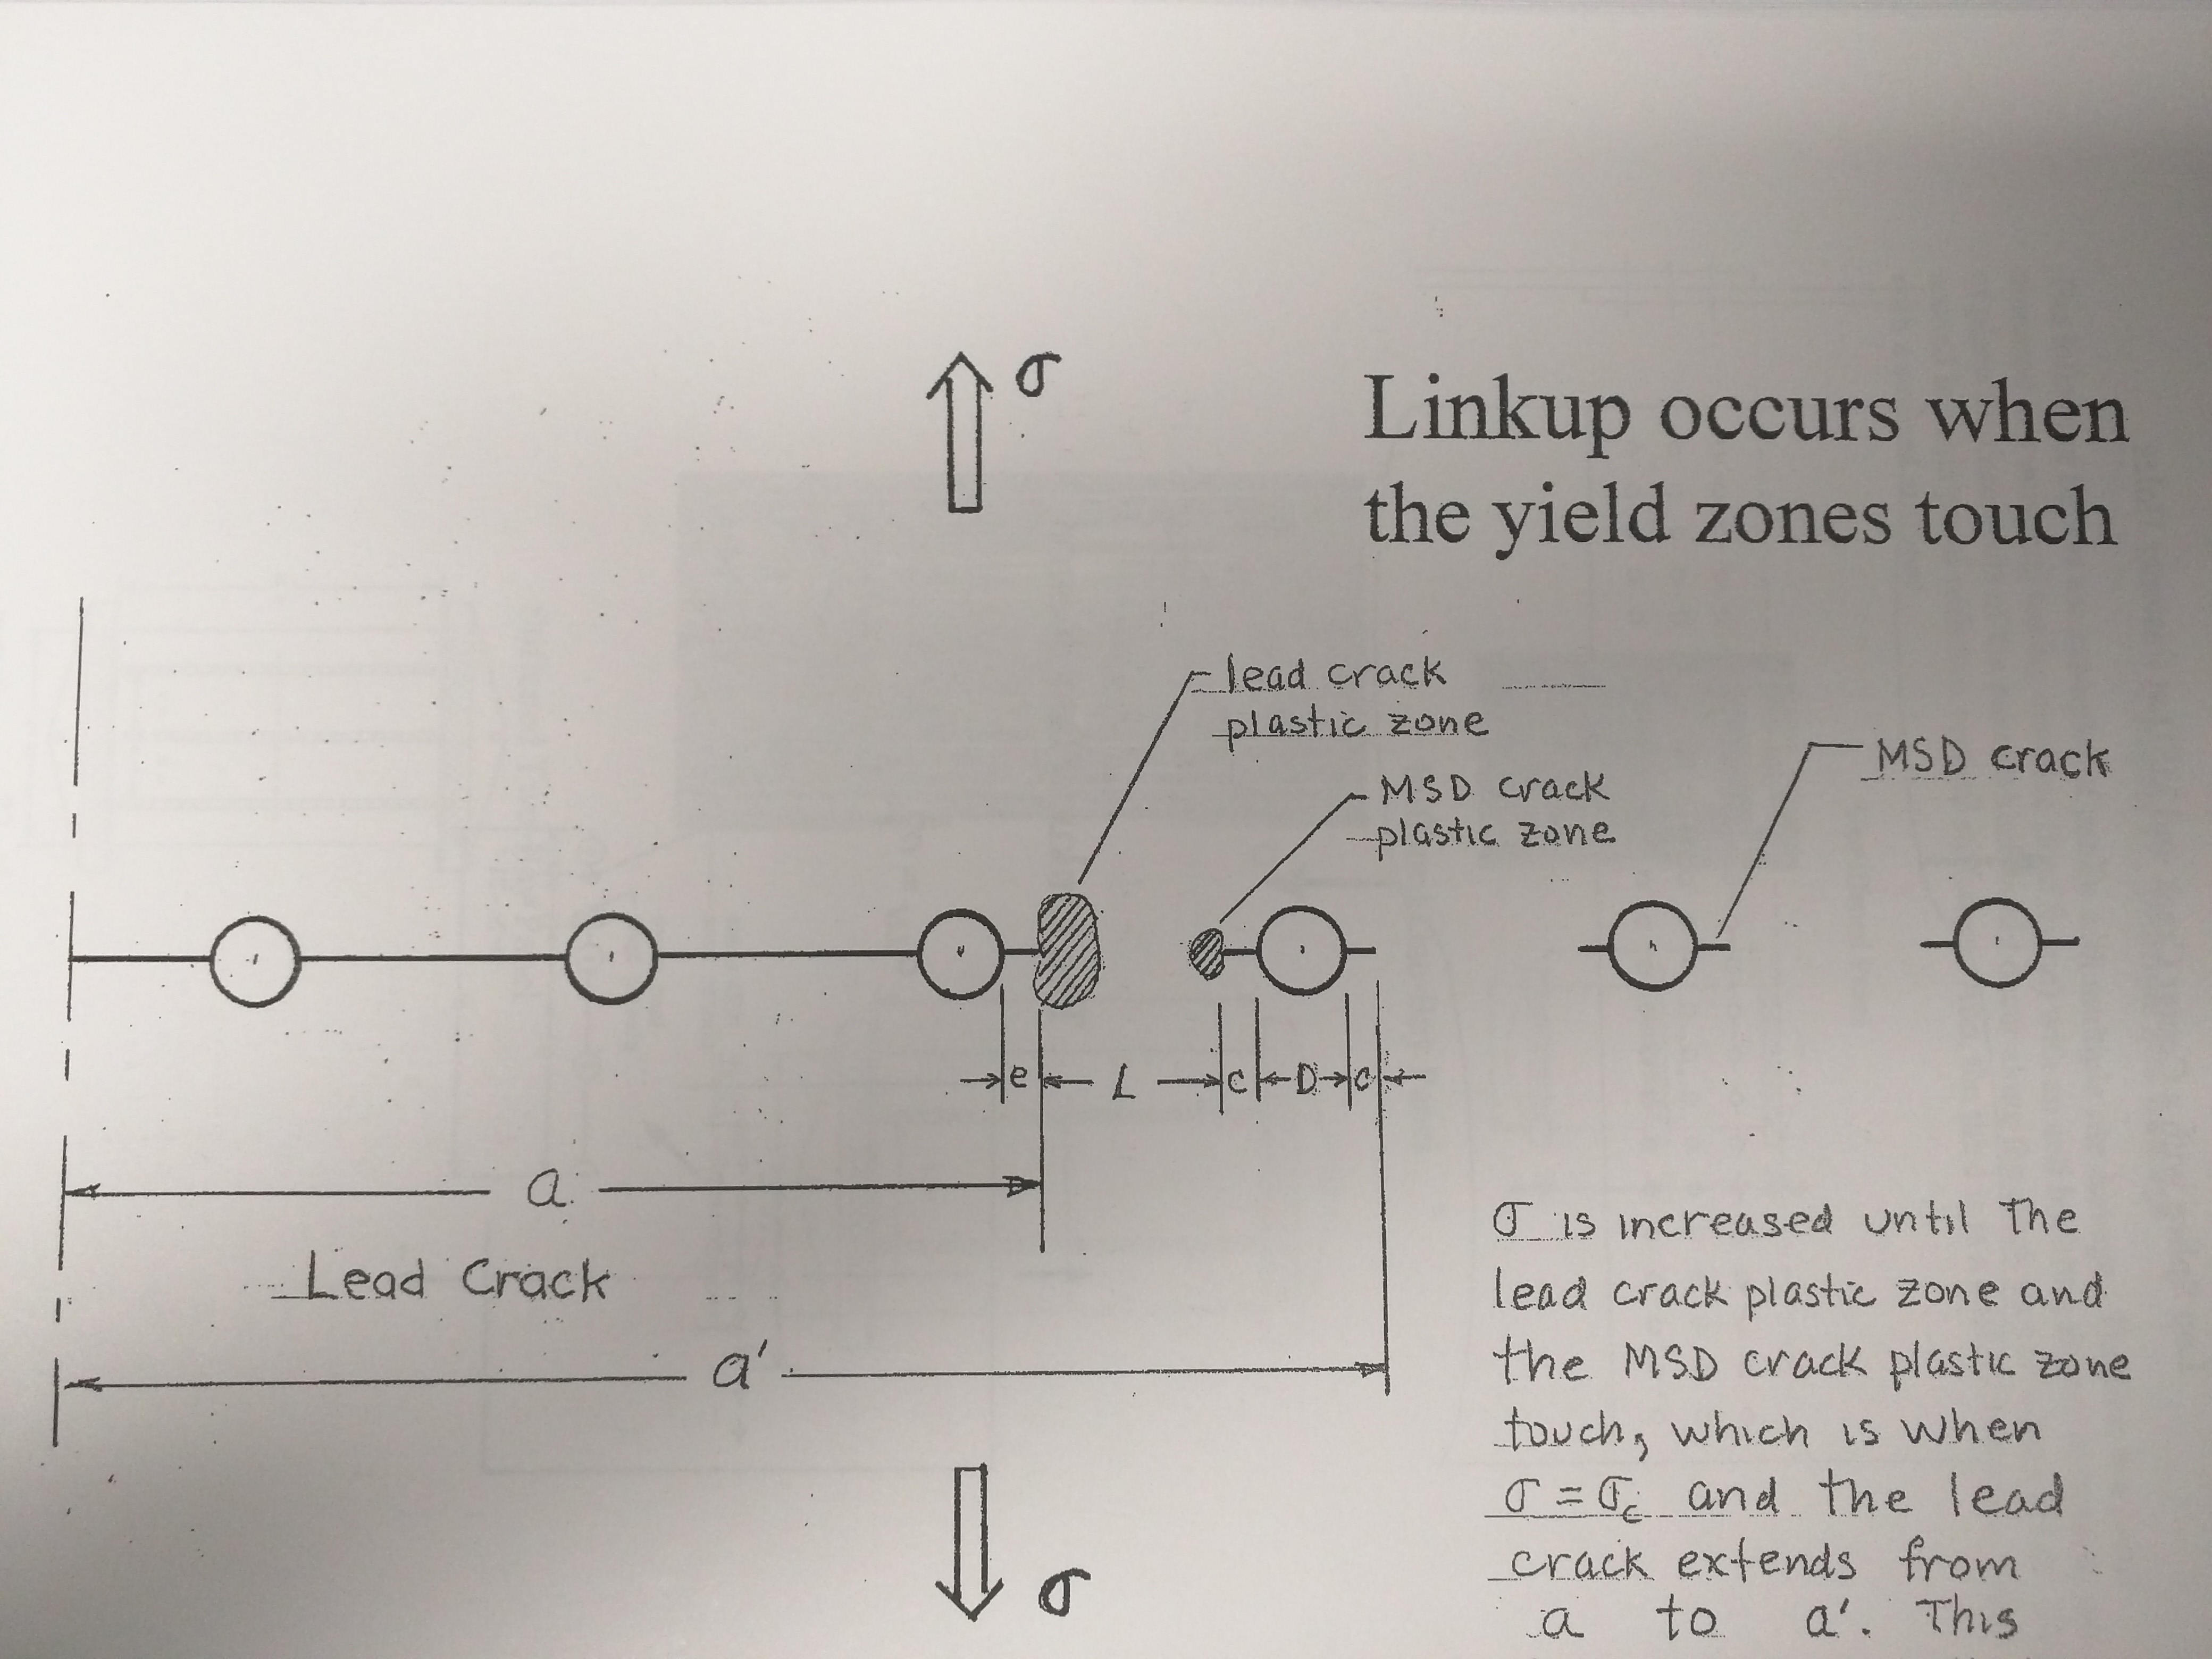 σ
Linkup occurs when
the yield zones touch
lead crack
plastic zone
MSD crack
MSD crack
plastic zone
plastic zone
e
L
c
D
c
a
Lead Crack
a'
σ
σ is increased until the
lead crack plastic zone and
the MSD crack plastic zone
touch, which is when
σ = σc and the lead
crack extends from
a to a'. This